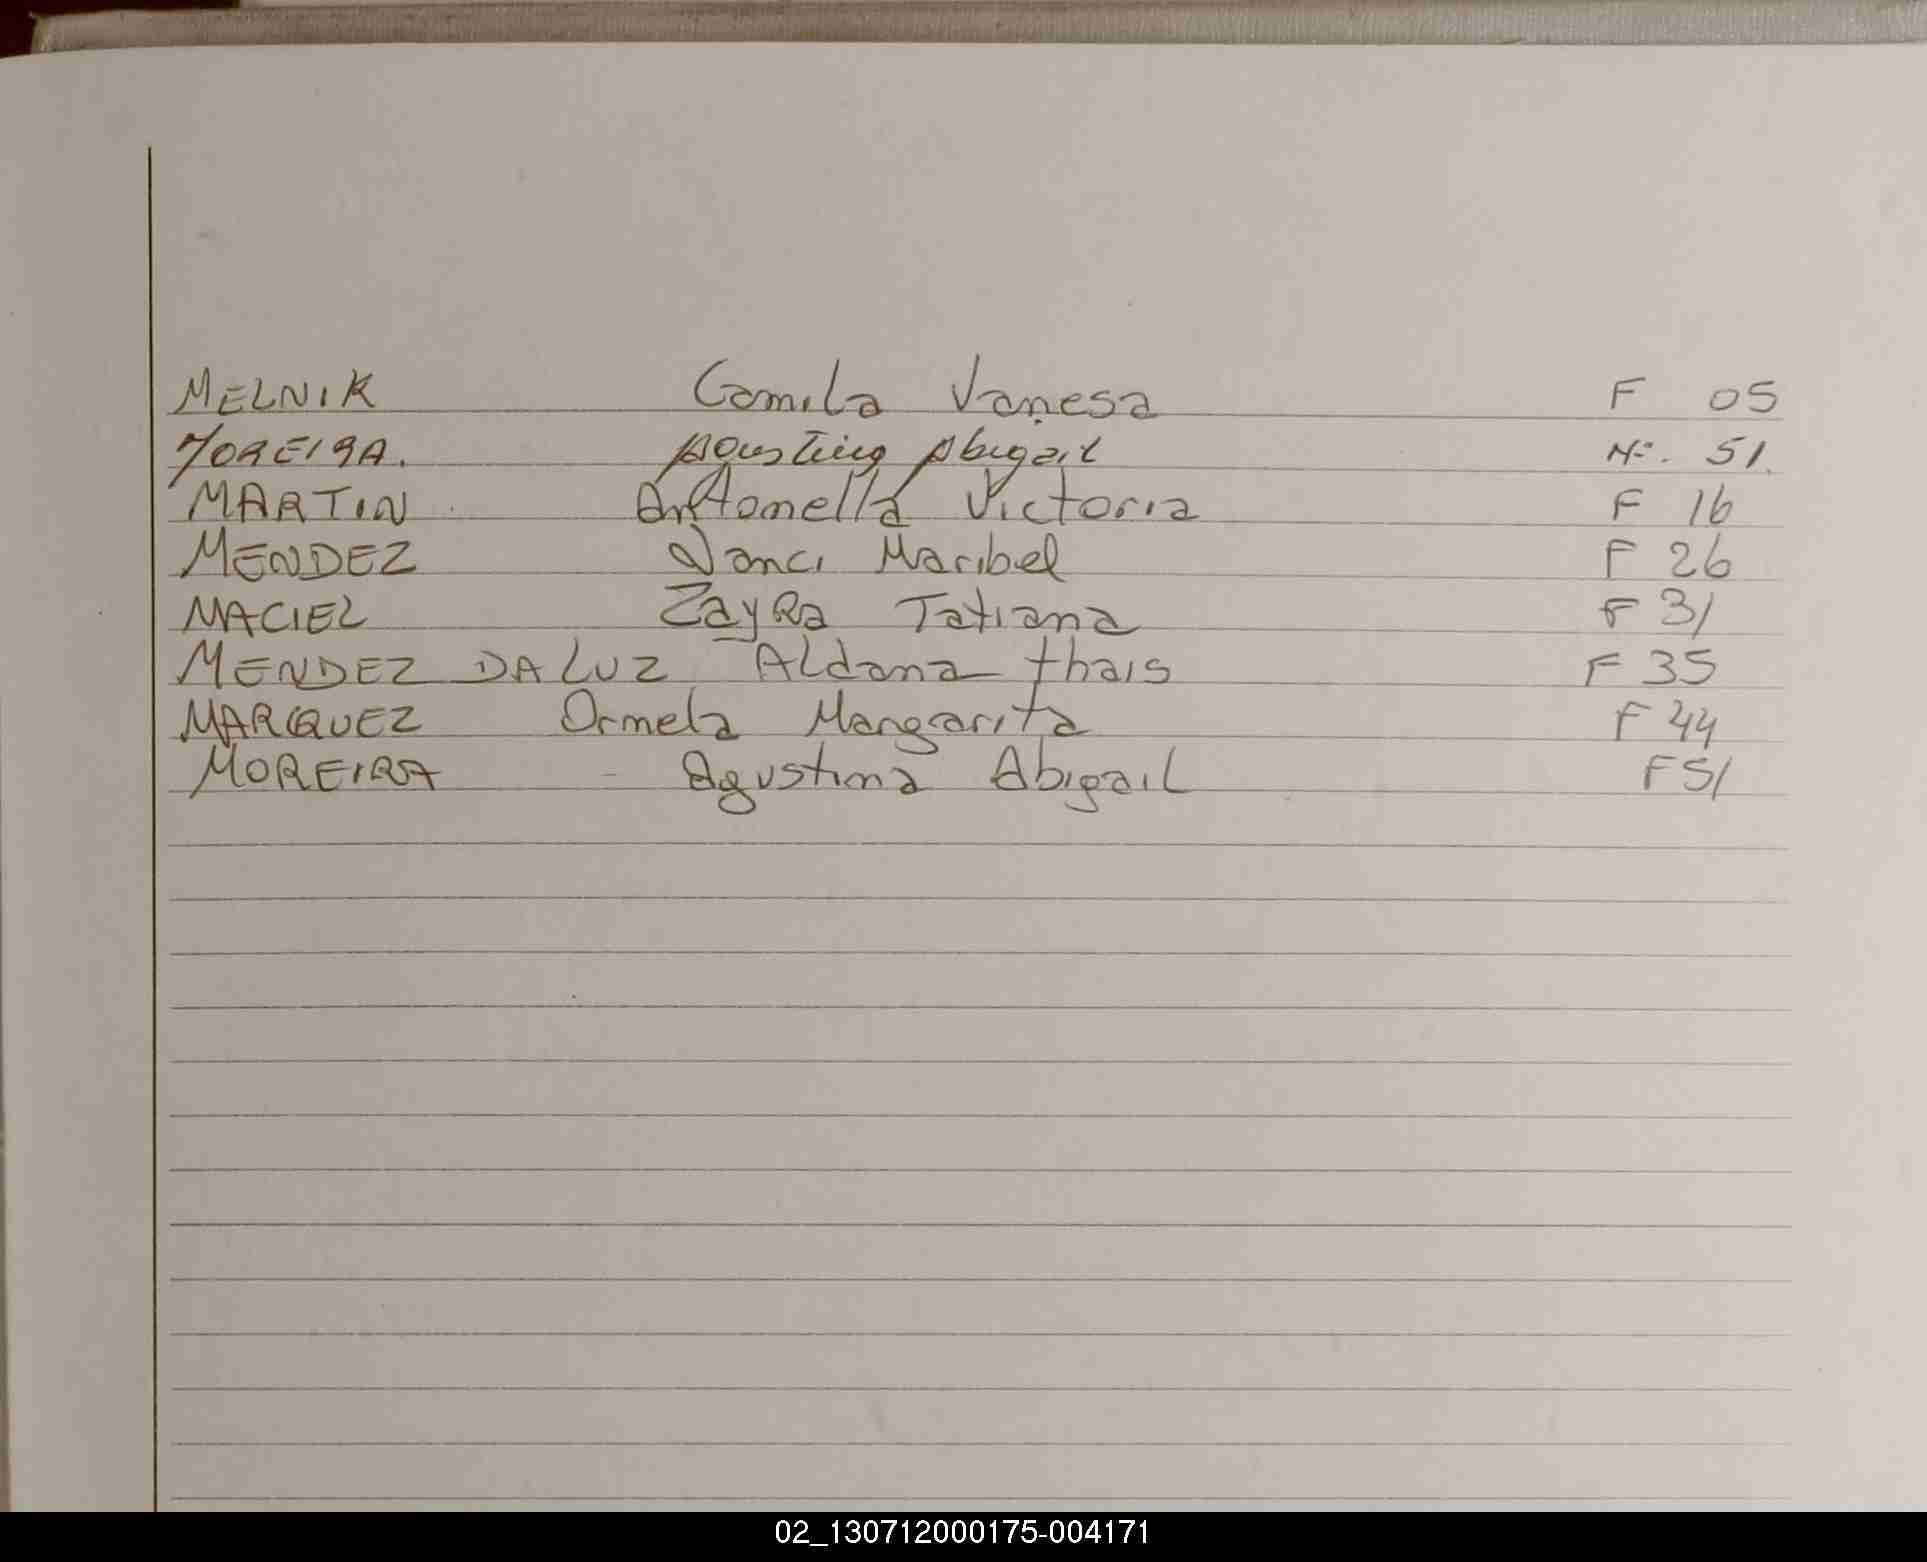 MELNIK Camila Vanesa F 05
MOREIRA. Agustina Abigail Nº. 51.
MARTIN Antonella Victoria F 16
MENDEZ Nanci Maribel F 26
MACIEL Zayra Tatiana F 31
MENDEZ DA LUZ Aldana thais F 35
MARQUEZ Ornela Margarita F 44
MOREIRA Agustina Abigail F 51
02_130712000175-004171